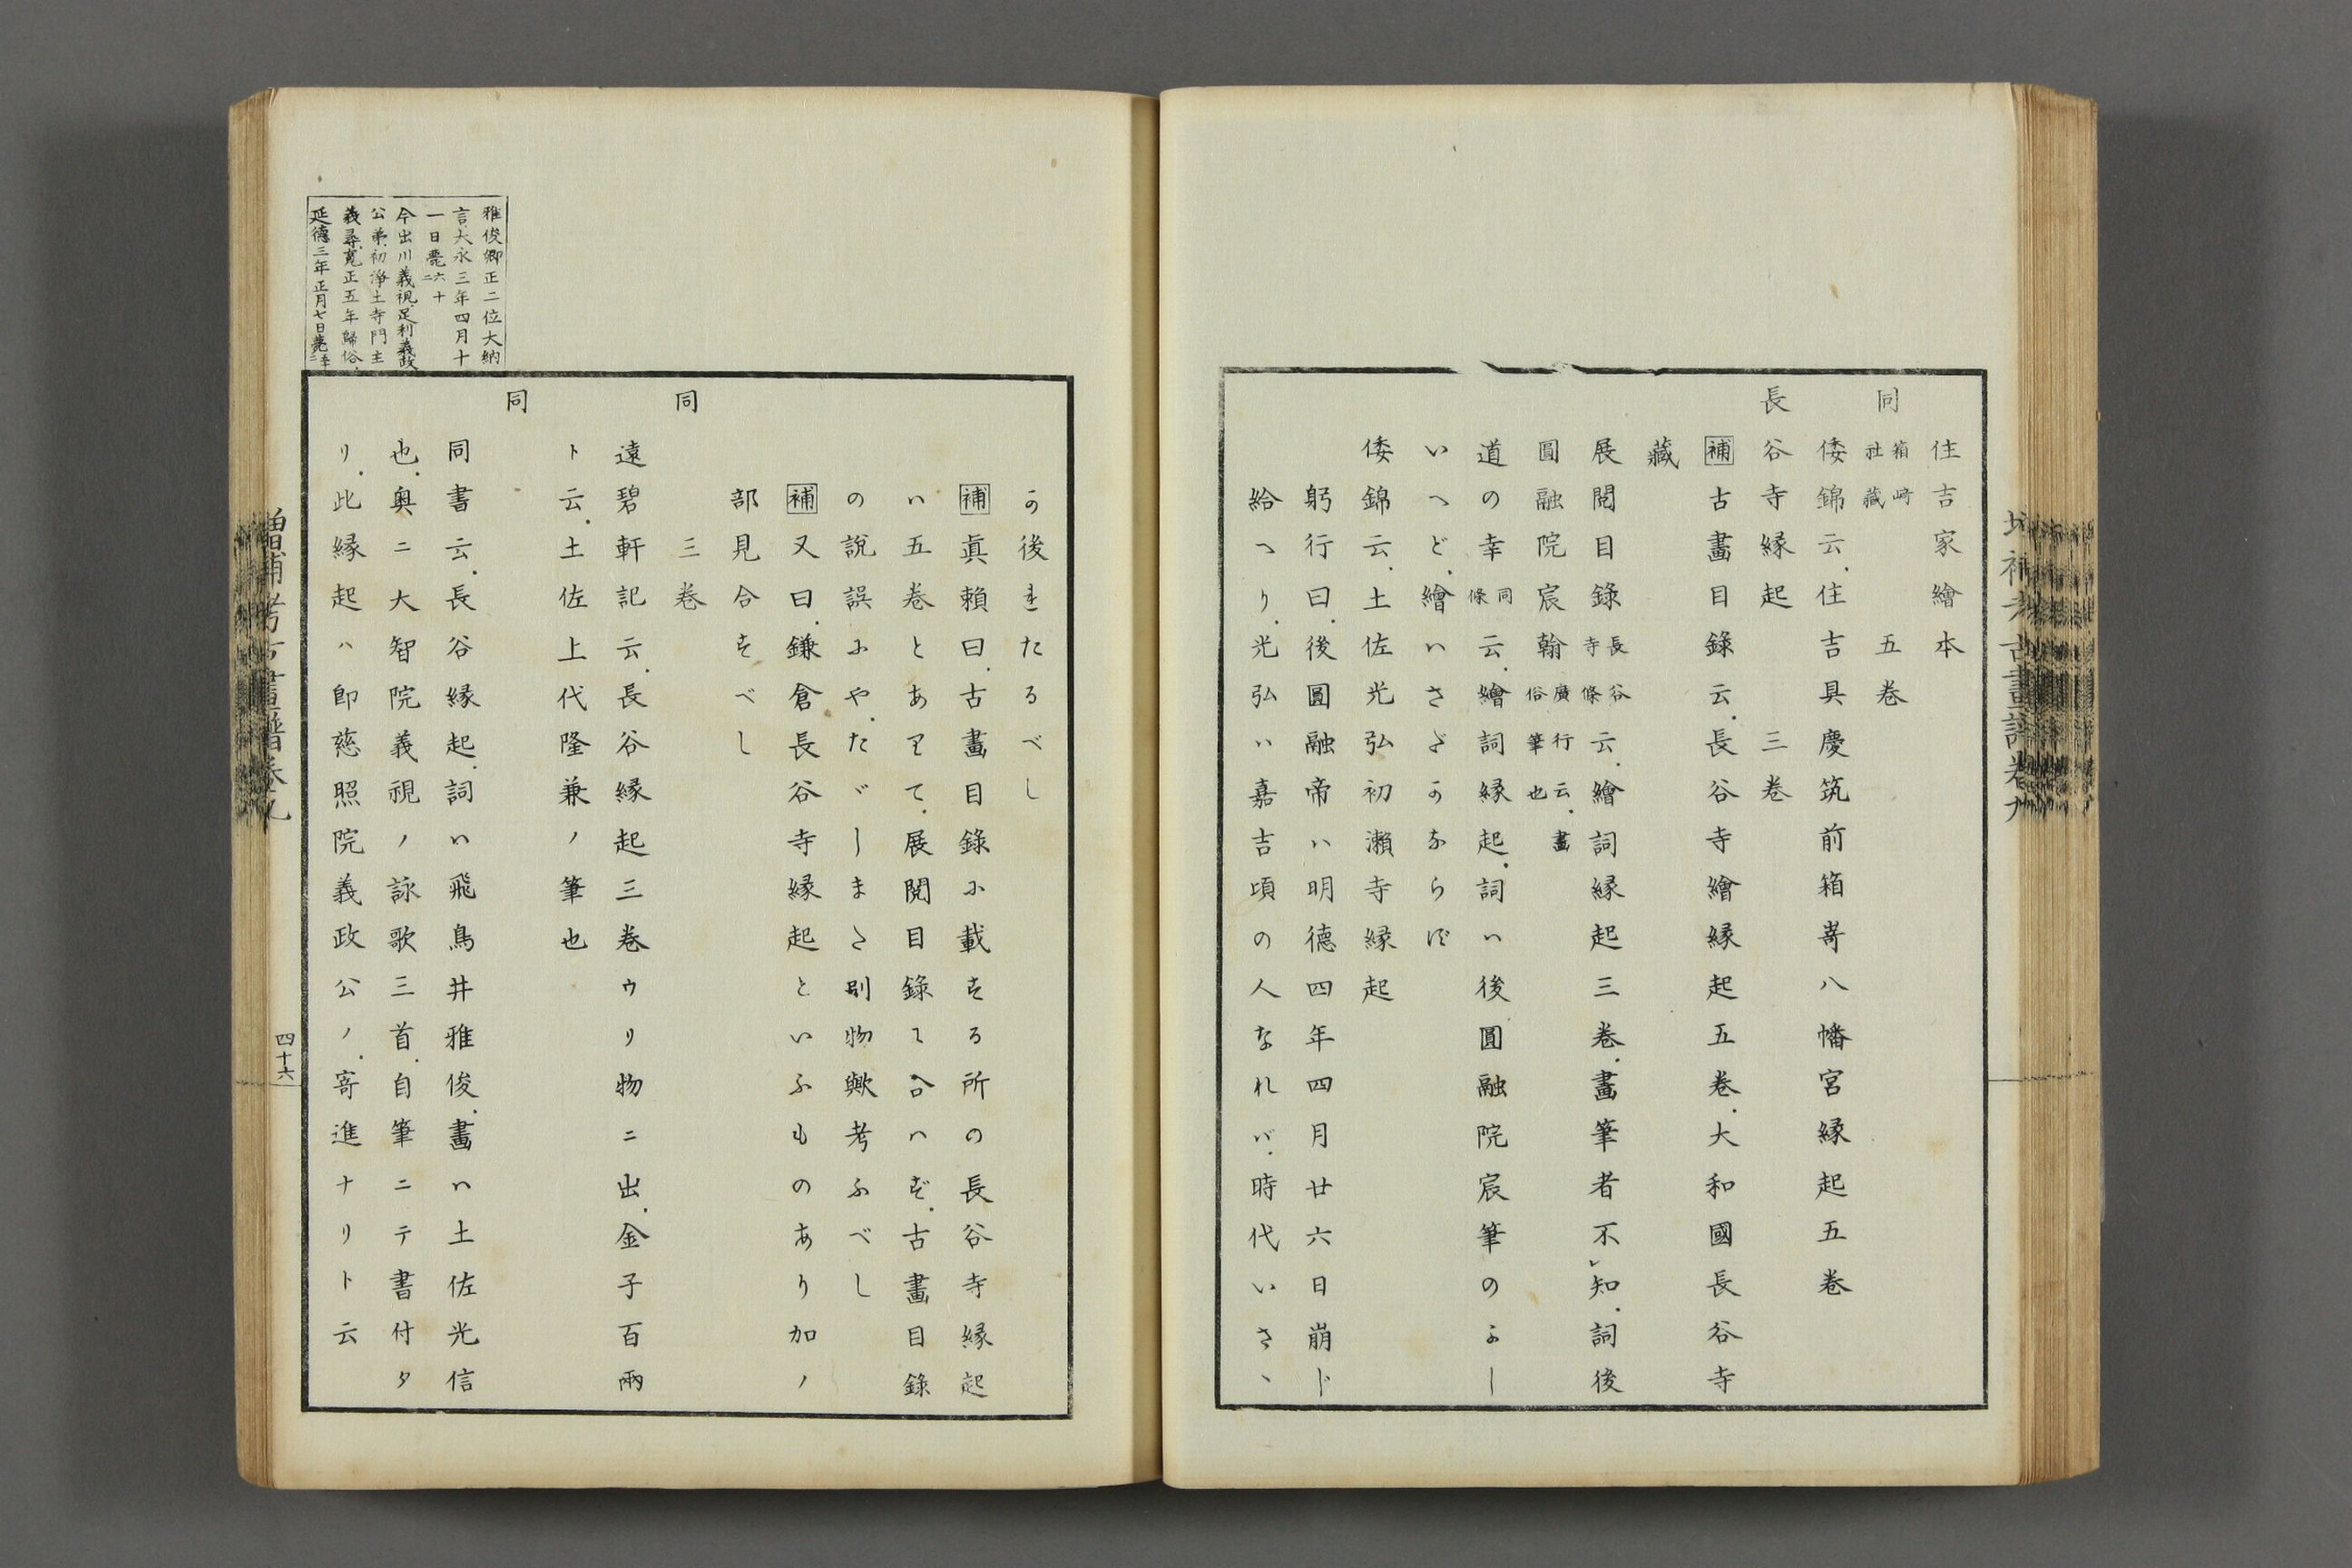 住吉家繪本
同 箱崎社藏 五卷
倭錦云、住吉具慶筑前箱嵜八幡宮縁起五卷
長谷寺縁起 三卷
補 古畫目錄云、長谷寺繪縁起五卷、大和國長谷寺
藏
展閲目錄 長谷寺條 云、繪詞縁起三卷、畫筆者不レ知、詞後
圓融院宸翰 廣行云、畫俗筆也
道の幸 同條 云、繪詞縁起、詞ハ後圓融院宸筆のよし
いへど、繪いさざかならず
倭錦云、土佐光弘初瀬寺縁起
躬行曰、後圓融帝ハ明德四年四月廿六日崩じ
給へり、光弘ハ嘉吉頃の人なれバ、時代いさゝ
か後れたるべし
補 眞賴曰、古畫目錄に載する所の長谷寺縁起
ハ五卷とありて、展閲目錄に合はず、古畫目錄
の說誤にや、たゞしまた別物歟考ふべし
補 又曰、鎌倉長谷寺縁起といふものあり加ノ
部見合すべし
同 三卷
遠碧軒記云、長谷縁起三卷ウリ物ニ出、金子百兩
ト云、土佐上代隆兼ノ筆也
同
同書云、長谷縁起、詞ハ飛鳥井雅俊、畫ハ土佐光信
也、奥ニ大智院義視ノ詠歌三首、自筆ニテ書付タ
リ、此縁起ハ卽慈照院義政公ノ、寄進ナリト云
雅俊卿正二位大納
言、大永三年四月十
一日薨六十二
今出川義視、足利義政
公弟、初淨土寺門主
義尋、寛正五年歸俗、
延德三年正月七日薨
增補考古畫譜卷九
四十六